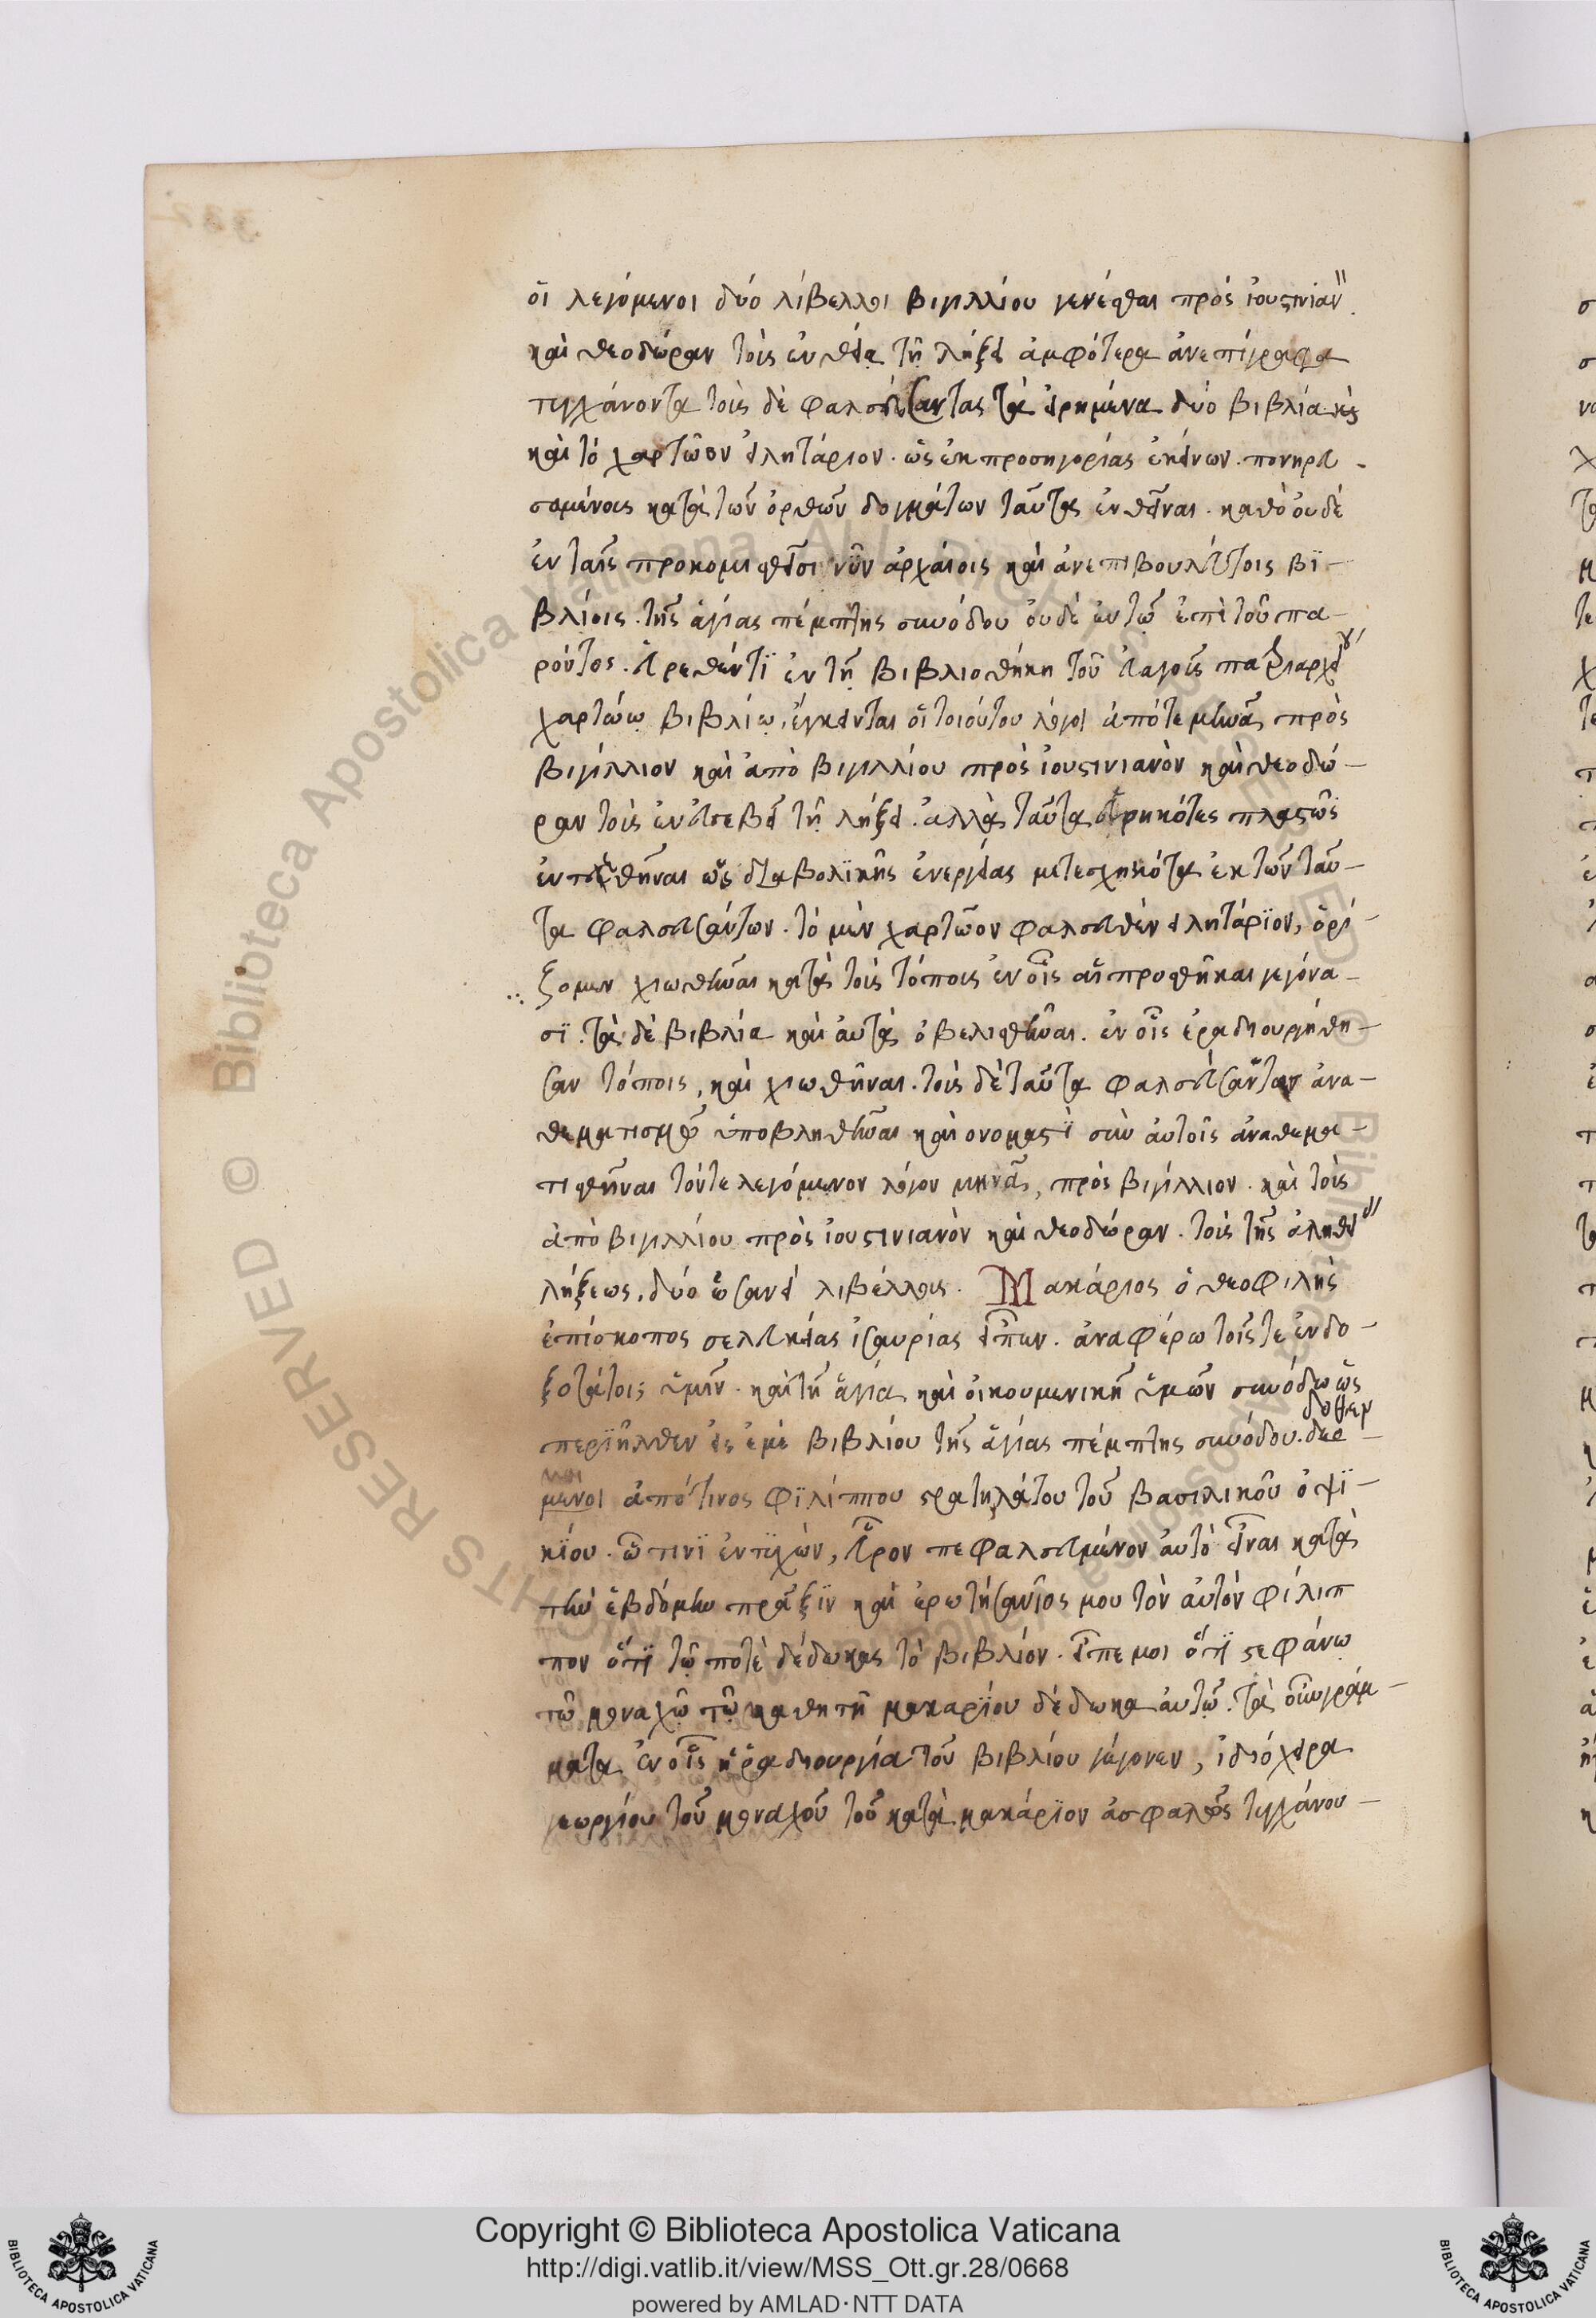 οἱ λεγόμενοι δύο λίβελλοι βιγιλλίου γενέσθαι πρὸς ἰουστινιαν
καὶ θεοδώραν τοὺς ἐν θεία τῆ λήξει ἀμφότερα ἀνεπίγραφα
τυγχάνοντα τοὺς δὲ φαλσεύσαντας τὰ εἰρημένα δύο βιβλία
καὶ τὸ χαρτῶον εἰλητάριον. ὡς ἐκ προσηγορίας ἐκείνων. πονηρευ
σαμένους κατὰ τῶν ὀρθῶν δογμάτων ταῦτας ἐνθεῖναι. καθὸ οὐδὲ
ἐν ταῖς προκομισθεῖσι νῦν ἀρχαίοις καὶ ἀνεπιβουλεύτοις βϊ-
βλίοις. τῆς ἁγίας πέμπτης συνόδου οὐδὲ ἐν τῶ ἐπὶ τοῦ πα-
ρόντος. εὑρεθέντϊ ἐν τῆ βιβλιοθήκη τοῦ εὐαγοῦς πατριαρχείου
χαρτώω βιβλίω, ἔγκεινται οἱ τοιούτου λόγοι ἀπό τε μηνᾶ πρὸς
βιγίλλιον καὶ ἀπὸ βιγιλλίου πρὸς ἰουστινιανὸν καὶ θεοδώ-
ραν τοὺς ἐν εὐσεβεῖ τῆ λήξει. ἀλλὰ ταῦτα εὑρηκότες πλαστῶς
ἐντεθῆναι ὡς διαβολϊκῆς ἐνεργείας μετεσχηκότα ἐκ τῶν ταῦ-
τα φαλσευσάντων. τὸ μὲν χαρτῶον φαλσευθὲν εἰλητάρϊον, ὁρί-
ζομεν χιωθῆναι κατὰ τοὺς τόπους ἐν οἷς αἱ προσθῆκαι γεγόνα-
σϊ. τὰ δὲ βιβλία καὶ αὐτὰ ὀβελισθῆναι. ἐν οἷς ἐραδιουργήθη-
σαν τόποις, καὶ χιωθῆναι. τοὺς δὲ ταῦτα φαλσεύσαντας ἀνα-
θεματισμῶ ὑποβληθῆναι καὶ ονομαστϊ σὺν αὐτοῖς ἀναθεμα-
τισθῆναι τόν τε λεγόμενον λόγον μηνᾶ, πρὸς βιγίλλιον. καὶ τοὺς
ἀπὸ βιγιλλίου πρὸς ἰουστινιανὸν καὶ θεοδώραν. τοὺς τῆς
λήξεως, δύο ὡσανεὶ λιβέλλους. Μακάριος ὁ θεοφιλὴς
ἐπίσκοπος σελευκείας ἰσαυρίας εἶπεν. ἀναφέρω τοῖς τε ἐνδο-
ξοτάτοις ὑμῖν. καὶ τῆ ἁγία καὶ οἰκουμενικῆ ὑμῶν συνόδω ὡς
περϊῆλθεν εἰς ἐμὲ βιβλίου τῆς ἁγίας πέμπτης συνόδου. δεο-
μενοι ἀπό τινος φϊλίππου στρατηλάτου τοῦ βασιλικοῦ ὀψϊ-
κΐου. ᾧτινϊ ἐντυχὼν, εὗρον πεφαλσευμένον αὐτὸ εἶναι κατὰ
τὴν ἑβδόμην πρᾶξϊν καὶ ἐρωτήσαντος μου τὸν αὐτὸν φίλιπ
πον ὅτϊ τῶ ποτὲ δέδωκας τὸ βιβλίον. εἶπε μοι ὅτϊ στεφάνω
τῶ μοναχῶ τῶ μαθητῆ μακαρΐου δέδωκα αὐτῶ. τὰ οὖν γράμ-
ματα ἐν οἷς ἡ ῥαδιουργία τοῦ βιβλίου γέγονεν, ἰδιόχειρα
γεωργίου τοῦ μοναχοῦ τοῦ κατὰ μακάρϊον ἀσφαλῶς τυγχάνου-
Copyright © Biblioteca Apostolica Vaticana
http://digi.vatlib.it/view/MSS_Ott.gr.28/0668
powered by AMLAD·NTT DATA
BIBLIOTECA APOSTOLICA VATICANA
BIBLIOTECA APOSTOLICA VATICANA